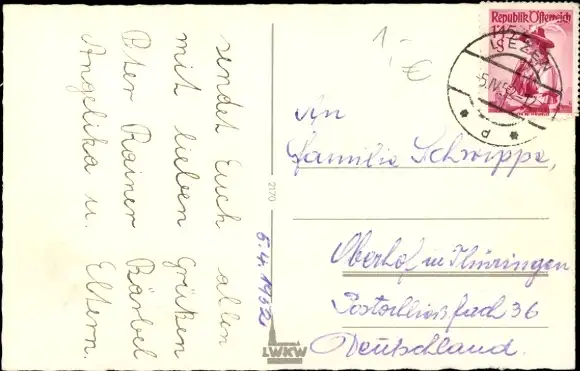 sendet Euch allen
mit lieben Grüßen
Peter Rainer Bärbel
Angelika u. Eltern.
1,- €
Republik Österreich
145
LIEZEN
-5.IV.52-12
* d *
An
Familie Schwippe,
Oberhof in Thüringen
Postschließfach 36
Deutschland.
2170
5.4.1952
LWKW